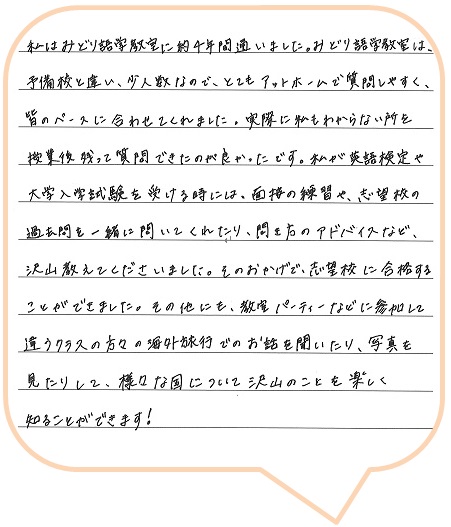 私はみどり語学教室に約4年間通いました。みどり語学教室は、
予備校と違い、少人数なので、とてもアットホームで質問しやすく、
皆のペースに合わせてくれました。実際に私もわからない所を
授業後残って質問できたのが良かったです。私が英語検定や
大学入学試験を受ける時には、面接の練習や、志望校の
過去問を一緒に解いてくれたり、問き方のアドバイスなど、
沢山教えてくださいました。そのおかげで、志望校に合格する
ことができました。その他にも、教室パーティーなどに参加して
違うクラスの方々の海外旅行でのお話を聞いたり、写真を
見たりして、様々な国について沢山のことを楽しく
知ることができます!